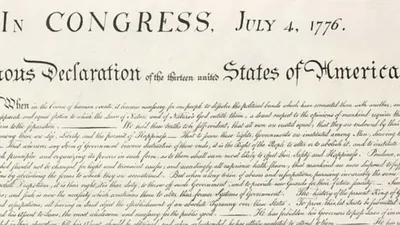 In CONGRESS, July 4, 1776.
mous Declaration of the thirteen united States of America
When in the Course of human events, it becomes necessary for one people to dissolve the political bands which have connected them with another, and
equal station to which the Laws of Nature and of Nature's God entitle them, a decent respect to the opinions of mankind requires
to the separation. We hold these truths to be self-evident, that all men are created equal, that they are endowed by
among these are Life, Liberty, and the pursuit of Happiness. — That to secure these rights, Governments are instituted among Men, deriving
That whenever any Form of Government becomes destructive of these ends, it is the Right of the People to alter or to abolish it, and to institute
principles and organizing its powers in such form, as to them shall seem most likely to effect their Safety and Happiness. Prudence,
should not be changed for light and transient causes; and accordingly all experience hath shewn, that mankind are more disposed to
by abolishing the forms to which they are accustomed. But when a long train of abuses and usurpations, pursuing invariably the same
Despotism, it is their right, it is their duty, to throw off such Government, and to provide new Guards for their future security.
such is now the necessity which constrains them to alter their former Systems of Government. The history of the present King of
usurpations, all having in direct object the establishment of an absolute Tyranny over these States. To prove this, let Facts be submitted
his Assent to Laws, the most wholesome and necessary for the public good. He has forbidden his Governors to pass Laws of